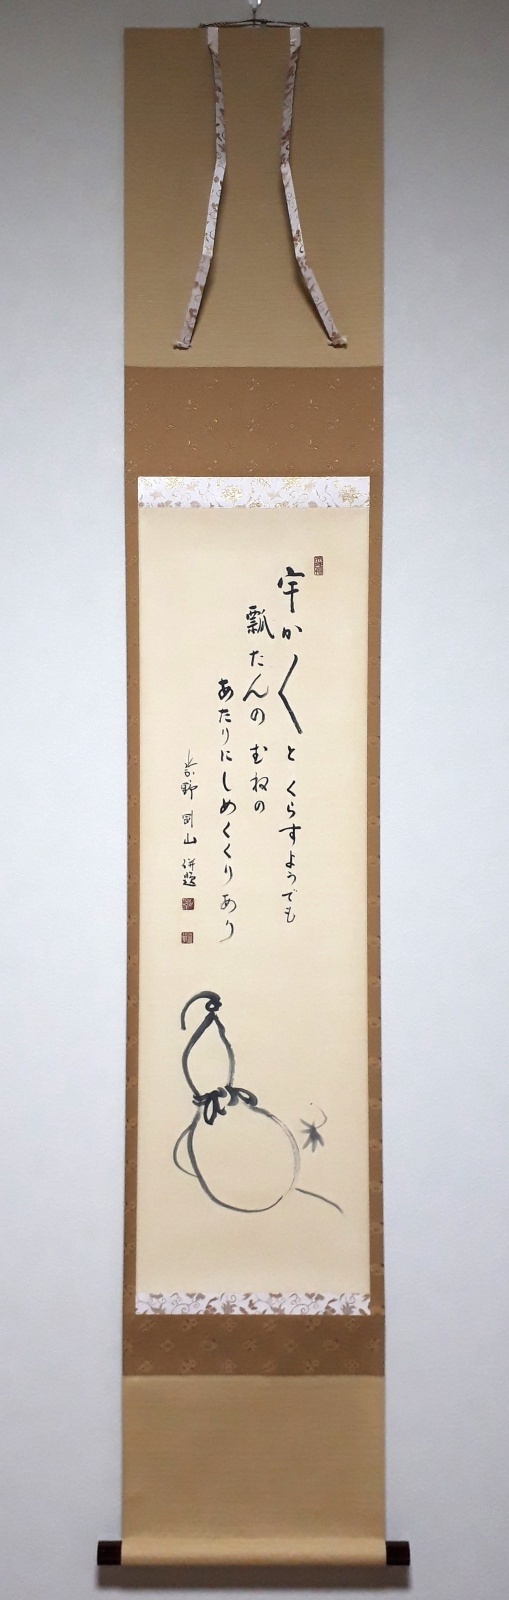 宇か〱とくらすようでも
瓢たんのむねの
あたりにしめくくりあり
紫野 剛山 併題